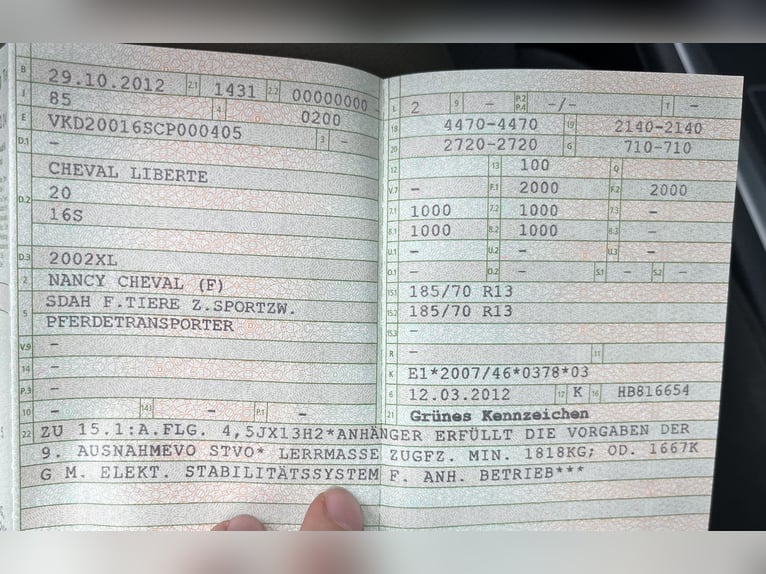 B 29.10.2012 2.1 1431 2.2 00000000
J 85 4 0200
E VKD20016SCP000405 3 –
D.1 –
CHEVAL LIBERTE
D.2 20
16S
D.3 2002XL
2 NANCY CHEVAL (F)
5 SDAH F.TIERE Z.SPORTZW.
PFERDETRANSPORTER
V.9 –
14 –
P.3 –
10 – 14.1 – P.1 –
L 2 9 – P.2 P.4 –/– T –
18 4470-4470 19 2140-2140
20 2720-2720 G 710-710
12 13 100 Q
V.7 – F.1 2000 F.2 2000
7.1 1000 7.2 1000 7.3 –
8.1 1000 8.2 1000 8.3 –
U.1 – U.2 – U.3 –
O.1 – O.2 – S.1 – S.2 –
15.1 185/70 R13
15.2 185/70 R13
15.3 –
R – 11
K E1*2007/46*0378*03
6 12.03.2012 17 K 16 HB816654
21 Grünes Kennzeichen
22 ZU 15.1:A.FLG. 4,5JX13H2*ANHÄNGER ERFÜLLT DIE VORGABEN DER
9. AUSNAHMEVO STVO* LERRMASSE ZUGFZ. MIN. 1818KG; OD. 1667K
G M. ELEKT. STABILITÄTSSYSTEM F. ANH. BETRIEB***